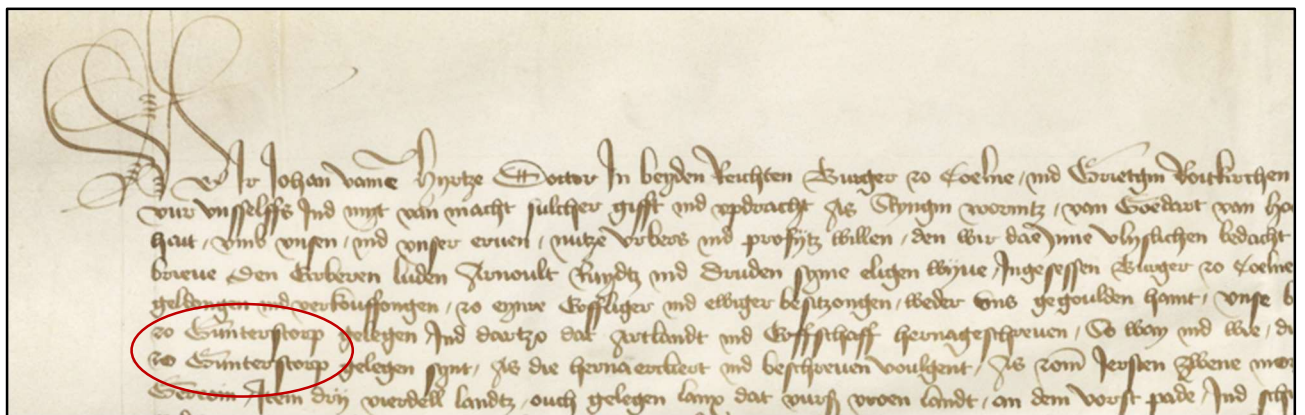 Wir Johan vame Hyrtze Doctor In beyden Reichten Burger zo Coelne / ind Grietgin
vur unsselffs Ind myt van macht sulcher gifft ind updracht As Styngin van Goedart van
hait / umb unsen / ind unser erven / nutze urbers ind profijtz willen / den wir dae Inne bedacht
brieve Den Erberen luden Arnoult ind Druden syme eligen wyve / Ingesessen Burger zo Coelne
geldongen ind verkouffongen / zo eynre Erffliger ind ewiger besitzongen / weder uns gegoulden haint / unse
zo Gunterstorp gelegen Ind dartzo dat Artlandt ind Erffschaff hernageschreven / So way ind wie /
zo Gunterstorp gelegen synt / As die herna ercleert ind beschreven voulgent / As zom Iersten zwene
Item drij vierdell landtz / ouch gelegen lanx dat vurß vroen landt / an dem vorst pade / Ind